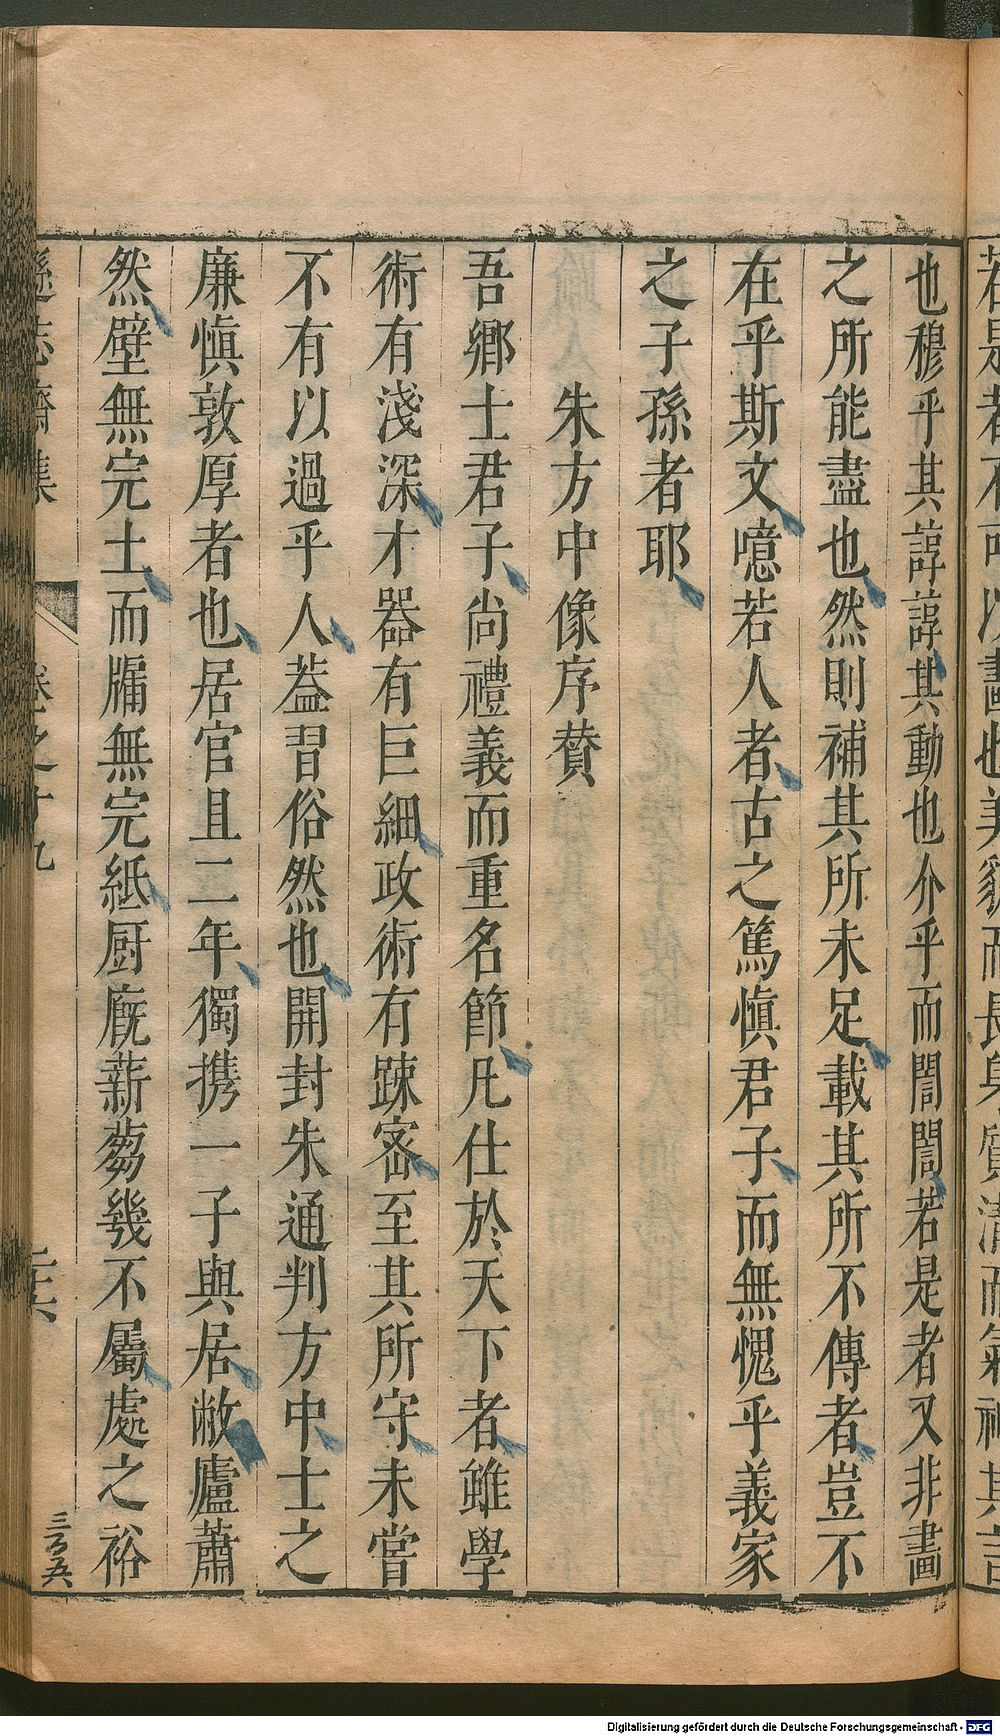 若是者不可以畫也美貌而長身質清而氣神其言
也穆乎其諄諄其動也介乎而誾誾若是者又非畫
之所能盡也然則補其所未足載其所不傳者豈不
在乎斯文噫若人者古之篤慎君子而無愧乎義家
之子孫者耶
朱方中像序贊
吾鄉士君子尚禮義而重名節凡仕於天下者雖學
術有淺深才器有巨細政術有踈宻至其所守未嘗
不有以過乎人葢習俗然也開封朱通判方中士之
廉慎敦厚者也居官且二年獨携一子與居敝廬蕭
然壁無完土而牖無完紙厨廐薪蒭幾不屬處之裕
遜志齋集 卷之十九 二六 三百五六
Digitalisierung gefördert durch die Deutsche Forschungsgemeinschaft - DFG